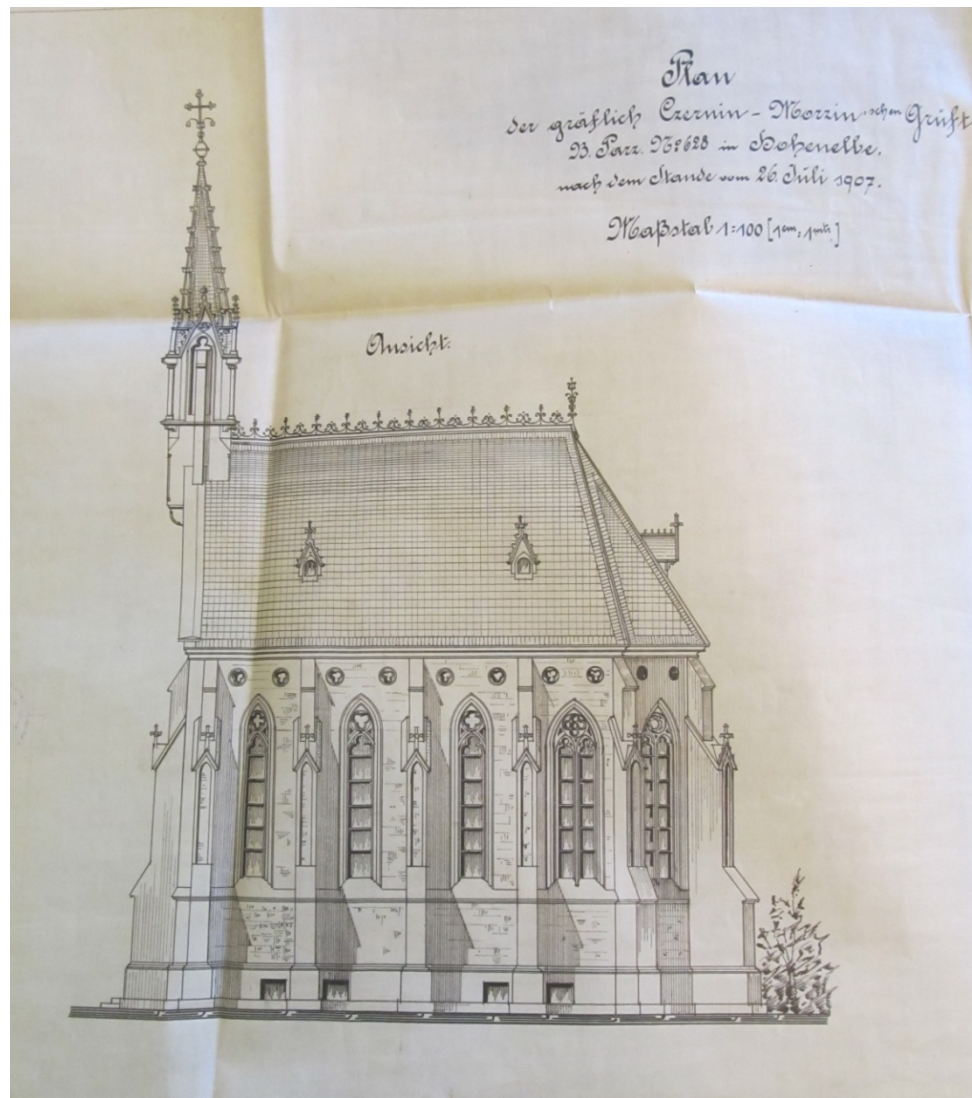 Plan
der gräflich Czernin - Morzin'schen Grüft
B. Parz. Nº 628 in Hohenelbe,
nach dem Stande vom 26. Jüli 1907.
Maßstab 1:100 [1cm = 1mtr.]
Ansicht: